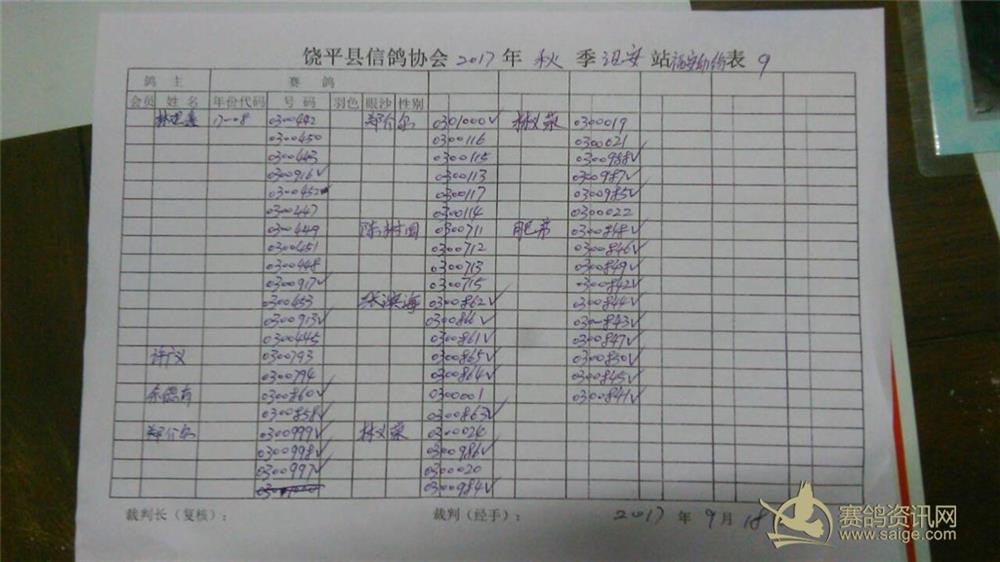 饶平县信鸽协会 2017 年 秋 季 诏安 站 表 9
鸽 主 赛 鸽
会员 姓 名 年份代码 号 码 羽色 眼沙 性别
17-08 0300442 郑介乐 0301000✓ 林义荣 0300019
0300450 0300116 0300021
0300443 0300115 0300988✓
0300916✓ 0300113 0300987✓
0300452 0300117 0300985✓
0300447 0300114 0300022
0300449 陈树国 0300711 肥弟 0300848✓
0300451 0300712 0300846✓
0300448 0300713 0300849✓
0300917✓ 0300715 0300842✓
0300453 张滨海 0300862✓ 0300844✓
0300913✓ 0300843✓
0300445 0300861✓ 0300847✓
许广义 0300793 0300865✓ 0300850✓
0300794 0300864✓ 0300845✓
0300860✓ 0300001 0300841✓
0300858✓ 0300863✓
郑介乐 0300999✓ 林义荣 0300024
0300998✓ 0300986✓
0300997✓ 0300020
0300984✓
裁判长（复核）： 裁判（经手）： 2017 年 9 月 18
赛鸽资讯网
www.saige.com